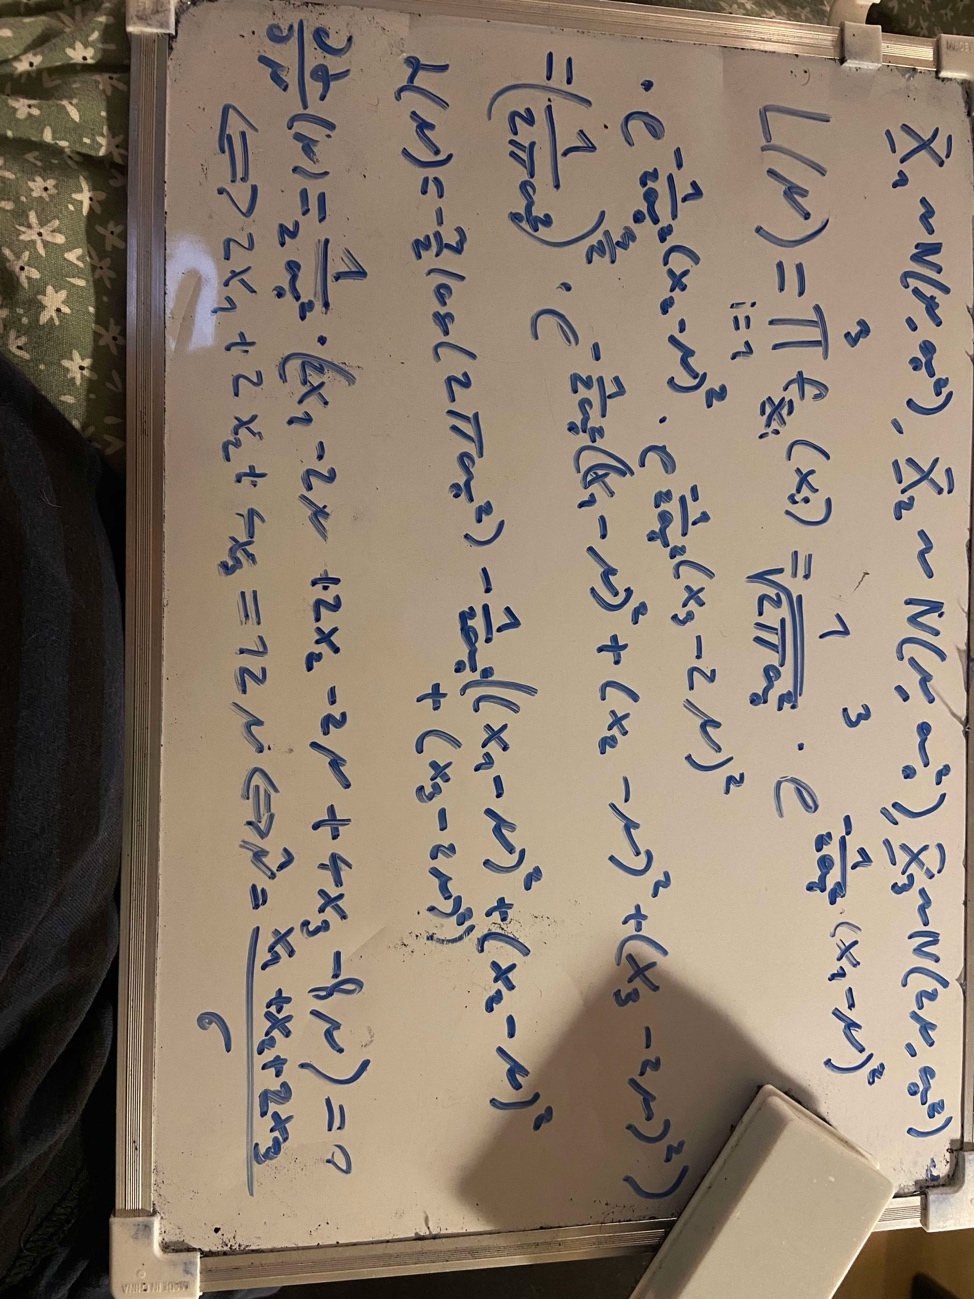 X̲₁ ~ N(μ, σ₀²), X̲₂ ~ N(μ, σ₀²), X̲₃ ~ N(2μ, σ₀²)
L(μ) = ∏ᵢ₌₁³ f_X̲ᵢ(xᵢ) = 1/√(2πσ₀²)³ · e^(-1/(2σ₀²) (x₁-μ)²)
· e^(-1/(2σ₀²) (x₂-μ)²) · e^(-1/(2σ₀²) (x₃-2μ)²)
= (1/(2πσ₀²))^(3/2) · e^(-1/(2σ₀²) ((x₁-μ)² + (x₂-μ)² + (x₃-2μ)²))
ℒ(μ) = -3/2 log(2πσ₀²) - 1/(2σ₀²) ((x₁-μ)² + (x₂-μ)²
+ (x₃-2μ)²)
∂ℒ/∂μ (μ) = 1/(2σ₀²) · (2x₁ - 2μ + 2x₂ - 2μ + 4x₃ - 8μ) = 0
⇔ 2x₁ + 2x₂ + 4x₃ = 12μ ⇔ μ̂ = (x₁ + x₂ + 2x₃)/6
MADE IN CHINA